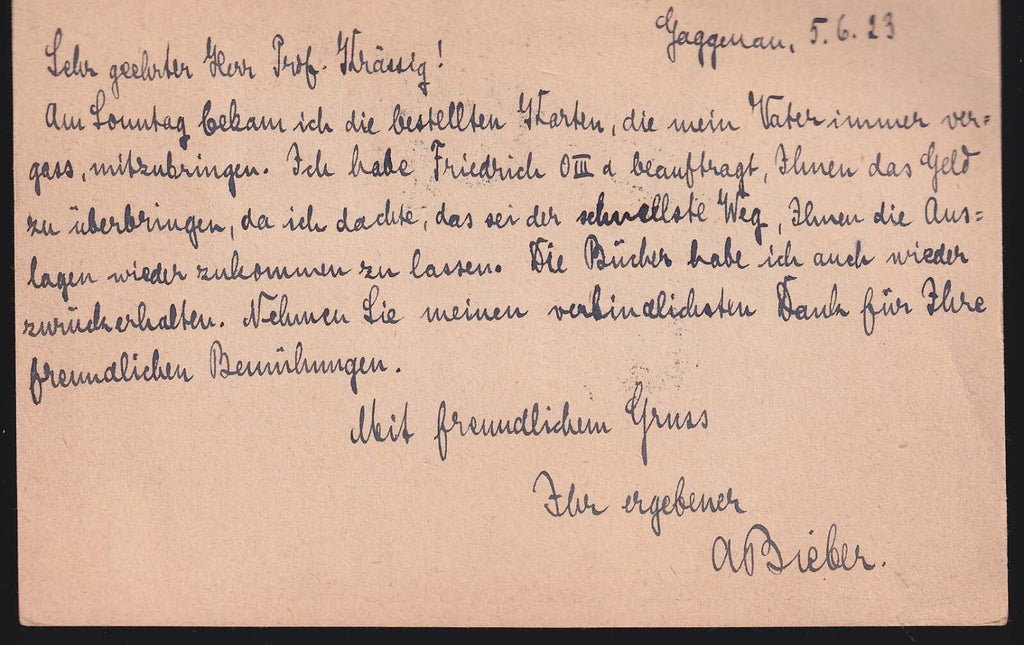 Gaggenau, 5.6.23
Sehr geehrter Herr Prof. Krässig!
Am Sonntag bekam ich die bestellten Karten, die mein Vater immer ver=
gass, mitzubringen. Ich habe Friedrich OIII a beauftragt, Ihnen das Geld
zu überbringen, da ich dachte, das sei der schnellste Weg, Ihnen die Aus=
lagen wieder zukommen zu lassen. Die Bücher habe ich auch wieder
zurückerhalten. Nehmen Sie meinen verbindlichsten Dank für Ihre
freundlichen Bemühungen.
Mit freundlichem Gruss
Ihr ergebener
A Bieber.